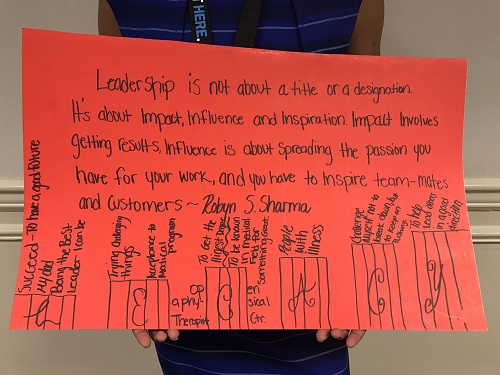 HERE.
Leadership is not about a title or a designation.
It's about Impact, Influence and Inspiration. Impact Involves
getting results, Influence is about spreading the passion you
have for your work, and you have to Inspire team-mates
and customers ~ Robyn S. Sharma
Succeed - To have a good future
My dad
Being the Best
Leader I can be
L
Trying challenging
things
Acceptance to
Medical program
E
To get the
Highest Degree
To be known
in medical
field for
something Great
Op
a phy-
Therapist
G
en
sical
Ctr.
People
with
illness
A
Challenge
myself not to
break down but
to keep on
Pushing
C
To help
Lead others
in a good
direction
Y